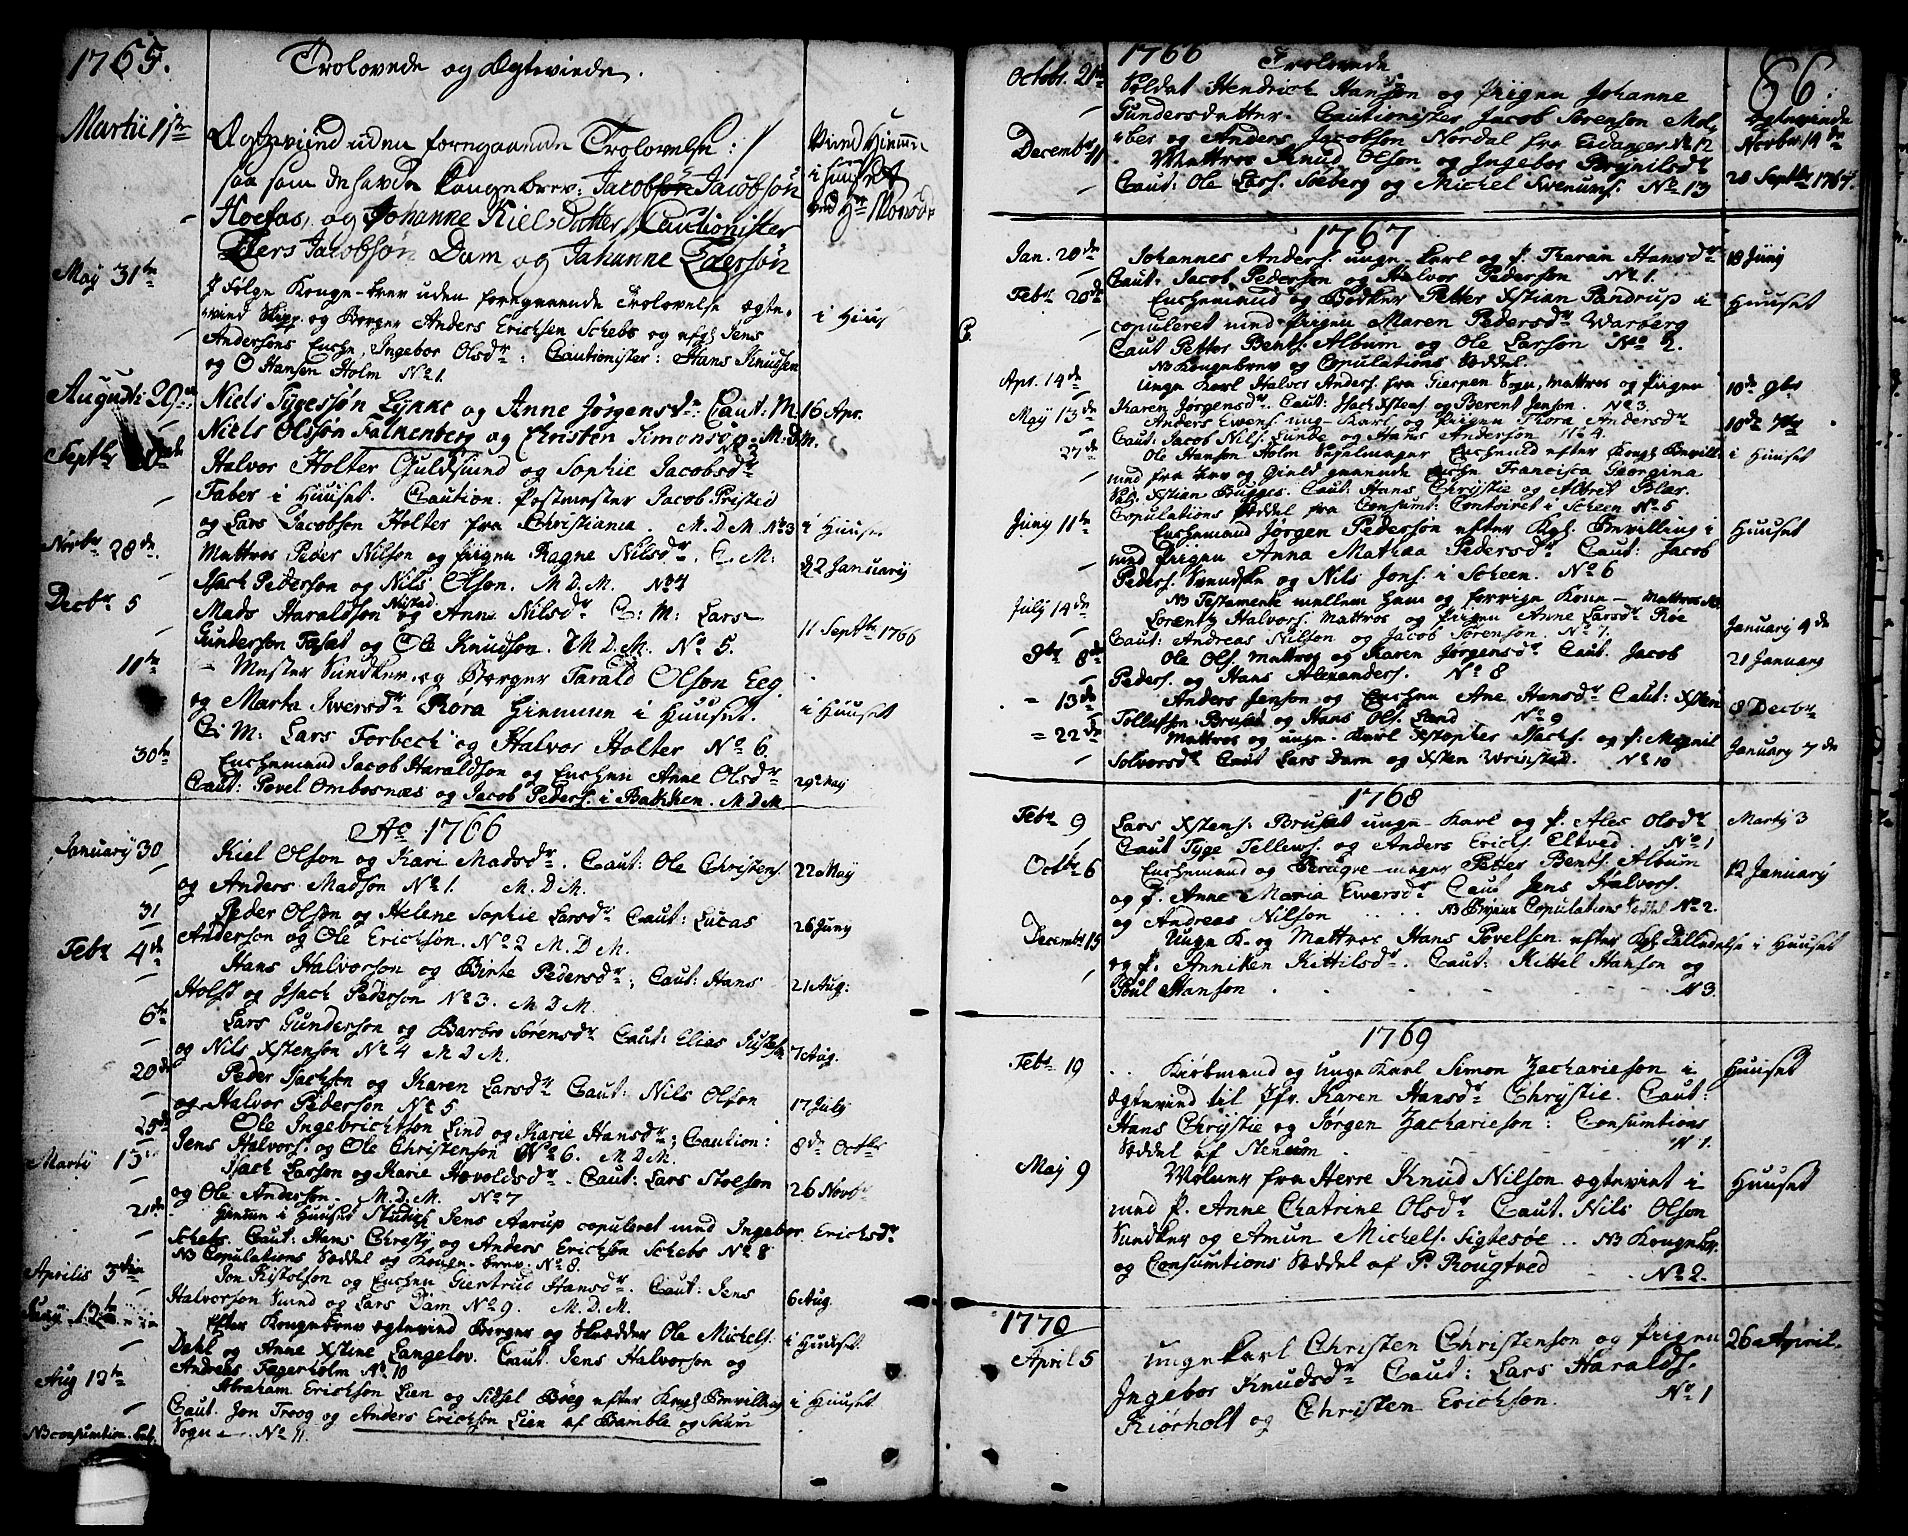 1765.
Trolovede og Ægteviede.
Martii 17de
Ægteviied uden foregaaende Trolovelse:
saa som de havde Kongebrev: Jacobson Jacobson
Hoefas, og Johanne Kiels Datter, Cautionister
Eders Jacobson Dam og Johanne Edersøn
i Huuset
ved Hr
May 31te
I Følge Konge-brev uden foregaaende Trolovelse ægte-
viied Skipp og Borger Anders Ericksen Schebs og afg. Jens
Andersons Enche, Ingebor Olsdr: Cautionister: Hans Knudsen
og O Hansen Holm No 1.
i Huus
August: 29
Niels Tygessøn Lynke og Anne Jørgensdr: Caut: M
16 Apr.
Niels Olssøn Falkenberg og Christen Simonsøn M.D.M.
Septbr
Halvor Holter Guldsmed og Sophie Jacobsdr
Faber i Huuset. Caution. Postmester Jacob Pristed
og Lars Jacobsen Holter fra Christiania. M.D.M. No 3
i Huuset
Novbr 28de
Mattros Peder Nilson og pigen Ragne Nilsdr. C. M:
Isach Pederson og Nils Olson. M.D.M. No 4
22 January
Decbr 5
Mads Haraldson Nistad og Anne Nilsdr C: M: Lars
Gunderson Faset og Ole Knudson. M.D.M. No 5.
11 Septbr 1766
11te
Mester Snedker og Borger Tarald Olson Eeg
og Marta Iversdr Røra Hiemme i Huuset.
C: M: Lars Forbech og Halvor Holter No 6
i Huuset
30te
Enchemand Jacob Haraldson og Enchen Anne Olsdr
Caut: Povel Ombosnæs og Jacob Peders. i Bakken. M.D.M
29 May
Ao 1766
January 30
Kiel Olson og Kari Madsdr. Caut: Ole Christens.
og Anders Madson No 1. M.D.M.
22 May
31
Peder Olson og Helene Sophie Larsdr Caut: Lucas
Anderson og Ole Erickson. No 2 M.D.M.
26 Juny
Febr 4de
Hans Halvorson og Birte Pedersdr; Caut: Hans
Holst og Isach Pederson No 3. M.D.M.
21 Aug:
6te
Lars Gunderson og Barbro Sørensdr Caut: Elias
og Nils Xstenson No 4 M.D.M.
7 Aug.
20de
Peder Isachson og Karen Larsdr Caut: Nils Olson
og Halvor Pederson No 5
17 July
25de
Ole Ingebrichtson Lind og Karie Hansdr; Caution:
Jens Halvors. og Ole Christenson No 6. M.D.M.
8de Octbr
Marty 13
Isach Larson og Karie Hævoldsdr. Caut: Lars Stolson
og Ole Anderson. M.D.M. No 7
26 Novbr
21de
Hiemm i Huuset Studios Jens Aarup copuleret med Ingebor Ericksdr
Schebs. Caut: Hans Christy og Anders Erickson Schebs No 8
NB Copulations Sæddel og Konge-brev. No 8.
Aprilis 3
Jon Kistolson og Enchen Giertrud Hansdr. Caut: Jens
Halvorson Sund og Lars Dam No 9. M.D.M.
6 Aug.
Juny 12te
Efter Kongebrev ægteviied Borger og Skrædder Ole Michels.
Dahl og Anne Xstine Langelov. Caut. Jens Halvorson og
Andreas Fegerholm No 10
i Huuset
Aug 12te
Abraham Erickson Lien og Sidsel Bøeg efter Kongl. Bevilling
Caut. Jon Troog og Anders Erickson Lien af Bamble og Solum
Sogne. No 11.
i Huuset
NB consumtion. Sed.
1766
Trolovede
66.
Octobr. 21de
Soldat Hendrich Hanson og Pigen Johanne
Gundersdatter. Cautionister Jacob Sørenson Mel-
ber og Anders Jacobson Nordal fra Eidanger No 12
Ægteviede
Novbr 14de
Decembr 11
Mattros Knud Olson og Ingebor Brynilsdr
Caut: Ole Lars. Soeberg og Michel Svenums. No 13
28 Septbr 1767.
1767
Jan. 20de
Johannes Anders. unge-karl og P. Karan Hansdr
Caut: Jacob Pederson og Halvor Pederson No 1.
18 Juny
Febr 20de
C.
Enchemand og Bødker Petter Xstian Pandrup i
copuleret med Pigen Maren Pedersdr Warberg
Caut Petter Bents. Album og Ole Larson No 2.
NB Kongebrev og Copulations Sæddel.
Huuset
Apr. 14de
unge Karl Halvor Anders. fra Gierpen Sogn, Mattros og Pigen
Karen Jørgensdr. Caut: Isach Xstens. og Berent Jenson. No 3.
10de 9br
May 13de
Anders Ewens. ung-Karl og Pigen Kora Andersdr
Caut: Jacob Nils. Lunde og Hans Anderson No 4.
10de 7br
27de
Ole Hanson Holm Enchemd efter Kongl Bevill
med fra Arv og Gield gaaende Enche Francisca Georgina
Sal. Xstian Bugges. Caut: Hans Chrystie og Albret Blar.
Copulations Sæddel fra Consumt: Contoiret i Scheen No 5
i Huuset
Juny 11te
Enchemand Jørgen Pederson efter Kgl. Bevilling i
med Pigen Anna Mathea Pedersdr Caut: Jacob
Peders. Svendske og Nils Jons. i Scheen. No 6
NB Testamente mellem ham og forrige Kone
Huuset
July 14de
Lorentz Halvors. Mattros og Pigen Anne Larsdr Røe
Caut: Andreas Nilson og Jacob Sørenson. No 7.
January 4de
9br 8de
Ole Ols. Mattros og Karen Jørgensdr Caut. Jacob
Peders. og Hans Alexanders. No 8
21 January
= 13de
Anders Jenson og Enchen Ane Hansdr Caut: Xsten
Tollefson Bruset og Hans Ols. Land No 9
8 Decbr
= 22de
Mattros og unge-Karl Xstopher Isachs. og P. Magnil
Solversdr Caut Lars Dam og Xsten No 10
January 7de
1768
Febr 9
Lars Xstens. Bruset unge-Karl og P. Ales Olsdr
Caut Tyge Tellews. og Anders Ericks. Eltved. No 1
Marty 3
Octbr 6
Enchemand og Peruqve-mager Petter Bents. Album
og P. Anne Maria Ewersdr Caut Jens Halvors.
og Andreas Nilson NB Copulations Seddel No 2.
12 January
Decembr 15
Unge K. og Mattros Hans Povelsen efter Kgl. Tilladelse i Huuset
og P. Anniken Kittilsdr. Caut: Kittel Hanson og
Poul Hanson No 3.
1769
Febr 19
Kiøbmand og Unge Karl Simon Zacharieson i
ægteviied til Jfr. Karen Hansdr Chrystie. Caut:
Hans Chrystie og Jørgen Zacharieson: Consumtions
Sæddel af Stenum. N 1.
Huuset
Maj 9
Møller fra Herre Knud Nilson ægteviet i
med P. Anne Chatrine Olsdr Caut. Nils Olson
Snedker og Amun Michels. Sigtesøe. NB Kongebr.
og Consumtions Sæddel af P. Rougtved No 2.
Huuset
1770
April 5
unge karl Christen Christenson og Pigen
Ingebor Knudsdr Caut: Lars Haralds.
Kiørholt og Christen Erickson. No 1
26 April.